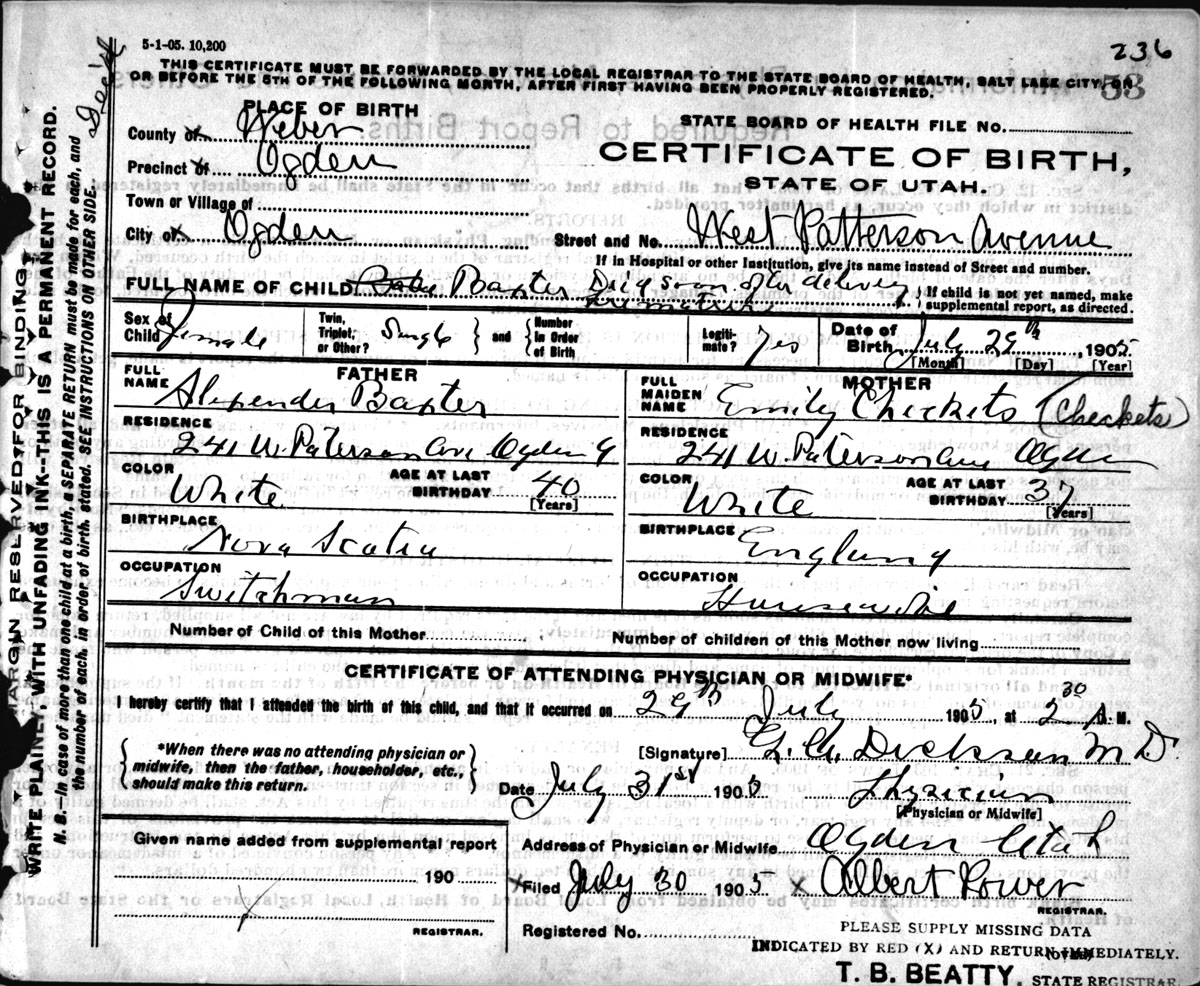 236
5-1-05. 10,200
Dec'd
THIS CERTIFICATE MUST BE FORWARDED BY THE LOCAL REGISTRAR TO THE STATE BOARD OF HEALTH, SALT LAKE CITY, ON
OR BEFORE THE 5TH OF THE FOLLOWING MONTH, AFTER FIRST HAVING BEEN PROPERLY REGISTERED.
53
PLACE OF BIRTH
County of Weber
STATE BOARD OF HEALTH FILE No.
Precinct of Ogden
CERTIFICATE OF BIRTH,
STATE OF UTAH.
Town or Village of
City of Ogden
Street and No. West Patterson Avenue
If in Hospital or other Institution, give its name instead of Street and number.
FULL NAME OF CHILD Baby Baxter Died soon after delivery
premature
If child is not yet named, make
supplemental report, as directed.
Sex of Child Female
Twin, Triplet, or Other? Single
and
Number In Order of Birth
Legiti-mate? Yes
Date of Birth July 29th, 1905
[Month] [Day] [Year]
FATHER
FULL NAME Alexander Baxter
MOTHER
FULL MAIDEN NAME Emily Checkets (Checkets)
RESIDENCE 241 W. Paterson Ave Ogden
RESIDENCE 241 W. Paterson Ave Ogden
COLOR White
AGE AT LAST BIRTHDAY 40
[Years]
COLOR White
AGE AT LAST BIRTHDAY 37
[Years]
BIRTHPLACE Nova Scotia
BIRTHPLACE England
OCCUPATION Switchman
OCCUPATION Housewife
Number of Child of this Mother
Number of children of this Mother now living
CERTIFICATE OF ATTENDING PHYSICIAN OR MIDWIFE*
I hereby certify that I attended the birth of this child, and that it occurred on 29th July 1905, at 2 30 A. M.
*When there was no attending physician or
midwife, then the father, householder, etc.,
should make this return.
[Signature] Dickson M D.
Date July 31st 1905
Physician
[Physician or Midwife]
Given name added from supplemental report
Address of Physician or Midwife Ogden Utah
190
X Filed July 30 1905 X Albert Power
REGISTRAR.
X
REGISTRAR.
Registered No.
PLEASE SUPPLY MISSING DATA
INDICATED BY RED (X) AND RETURN IMMEDIATELY.
(OVER)
T. B. BEATTY, STATE REGISTRAR.
MARGIN RESERVED FOR BINDING
WRITE PLAINLY, WITH UNFADING INK--THIS IS A PERMANENT RECORD.
N. B. In case of more than one child at a birth, a SEPARATE RETURN must be made for each, and
the number of each, in order of birth, stated. SEE INSTRUCTIONS ON OTHER SIDE.